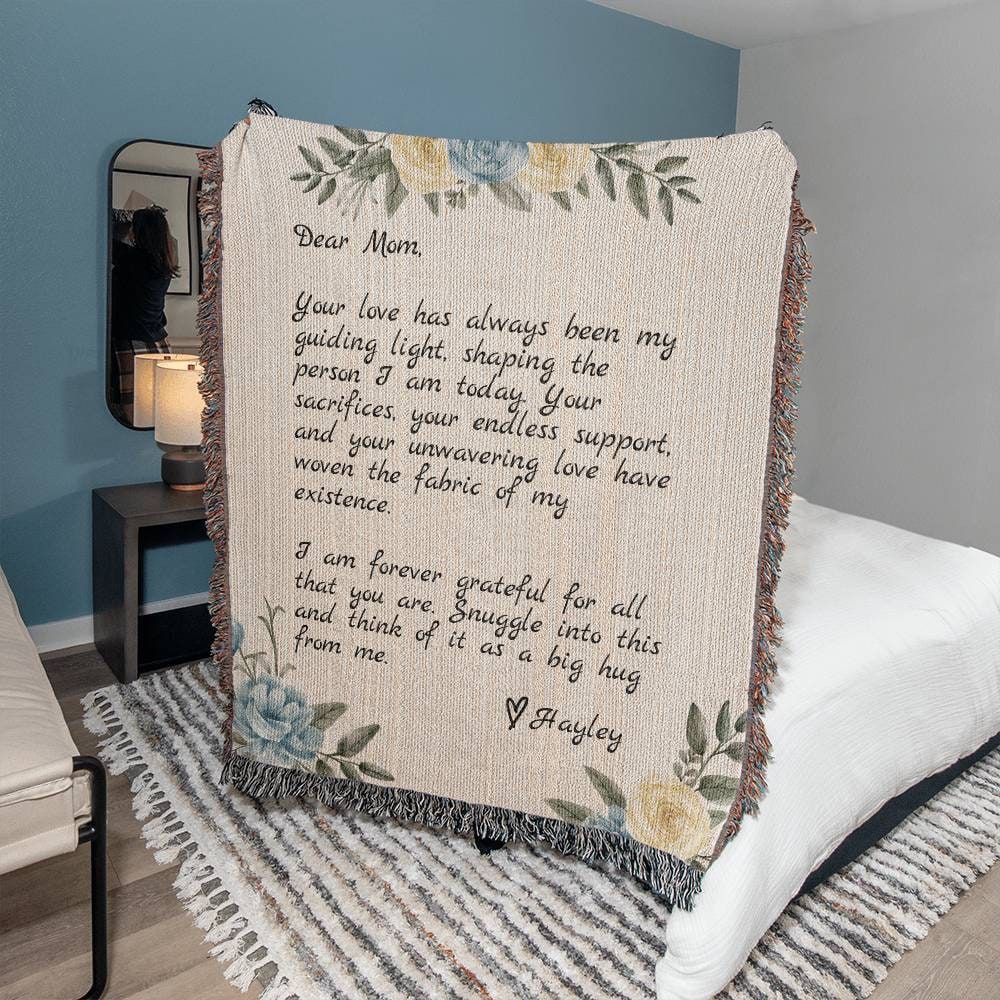 Dear Mom,
Your love has always been my
guiding light, shaping the
person I am today. Your
sacrifices, your endless support,
and your unwavering love have
woven the fabric of my
existence.
I am forever grateful for all
that you are. Snuggle into this
and think of it as a big hug
from me.
♡ Hayley